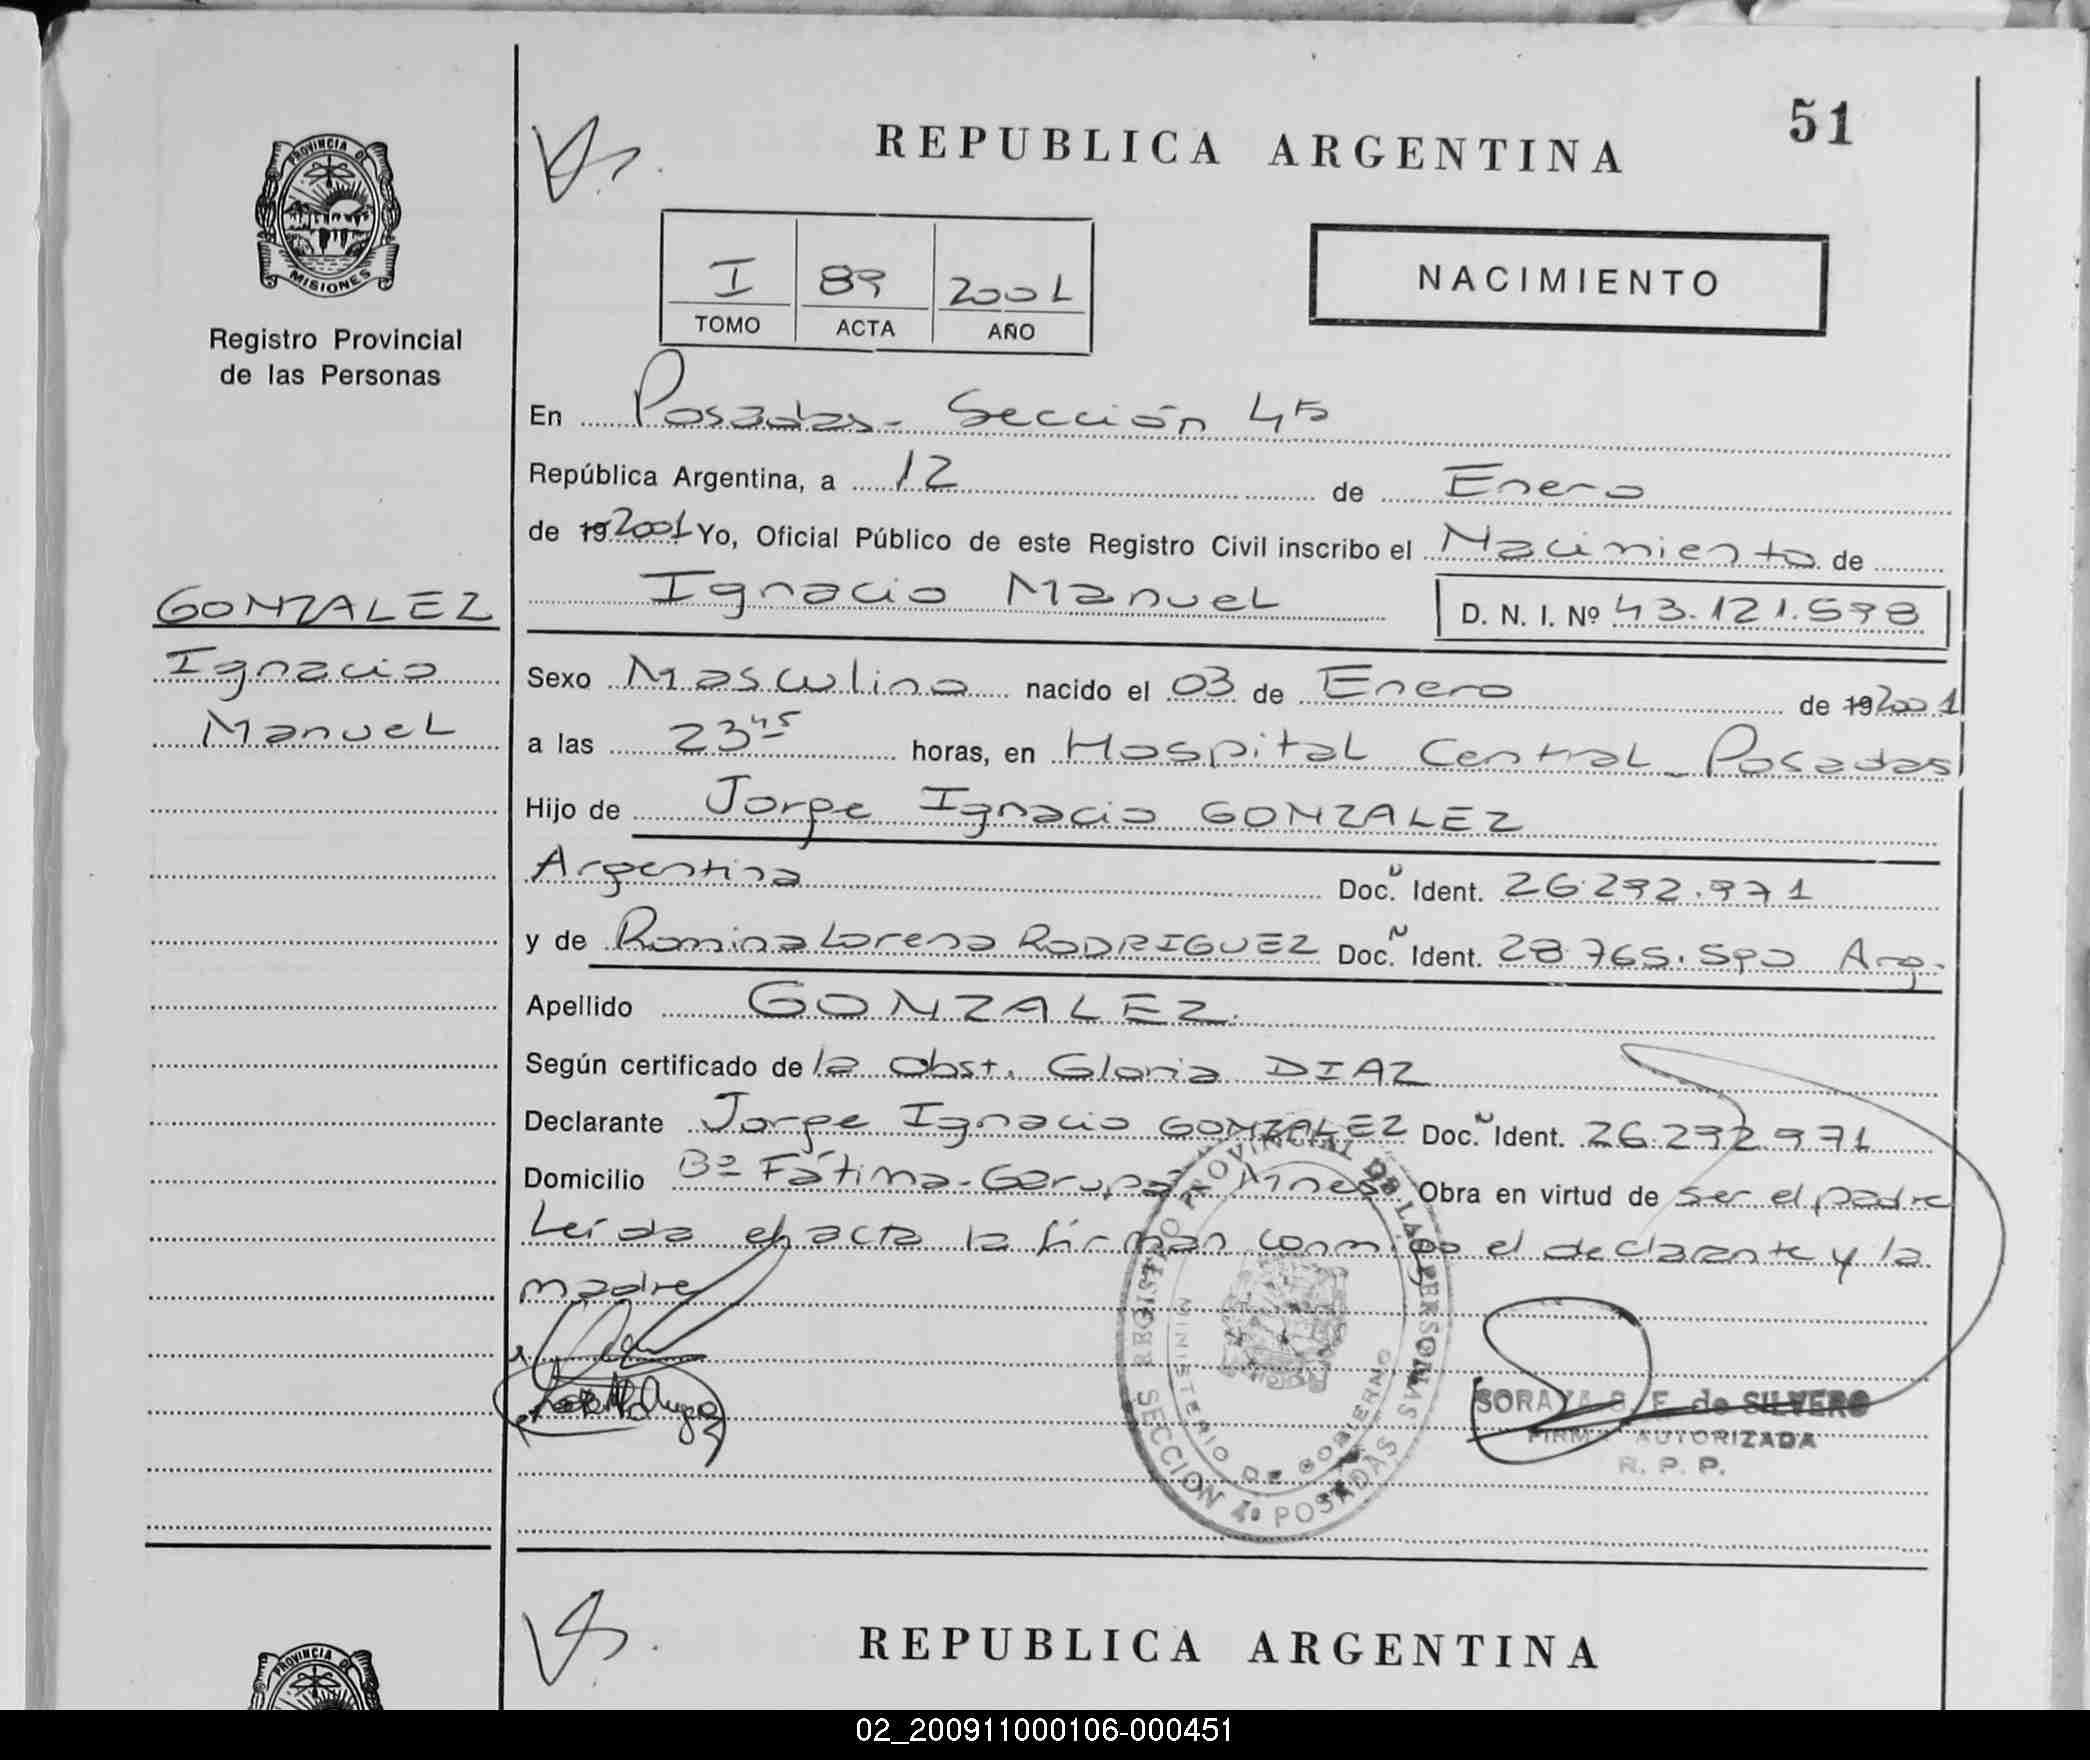 51
REPUBLICA ARGENTINA
PROVINCIA DE
MISIONES
Registro Provincial
de las Personas
I 89 2001
TOMO ACTA AÑO
NACIMIENTO
En Posadas - Sección 4ta
República Argentina, a 12 de Enero
de 19 2001 Yo, Oficial Público de este Registro Civil inscribo el Nacimiento de
Ignacio Manuel D. N. I. Nº 43.121.598
GONZALEZ
Ignacio
Manuel
Sexo Masculino nacido el 03 de Enero de 19 2001
a las 23 45 horas, en Hospital Central - Posadas
Hijo de Jorge Ignacio GONZALEZ
Argentina Doc. Ident. 26.292.971
y de Romina Lorena RODRIGUEZ Doc. Ident. 28.765.590 Arg.
Apellido GONZALEZ.
Según certificado de la Obst. Gloria DIAZ
Declarante Jorge Ignacio GONZALEZ Doc. Ident. 26.292.971
Domicilio Bº Fátima - Garupá Mnes Obra en virtud de ser el padre
Leída el acta la firman conmigo el declarante y la
madre
REGISTRO PROVINCIAL DE LAS PERSONAS
MINISTERIO DE GOBIERNO
SECCION 4ª POSADAS
SORAYA G. E. de SILVERO
FIRMA AUTORIZADA
R. P. P.
REPUBLICA ARGENTINA
PROVINCIA DE
02_200911000106-000451